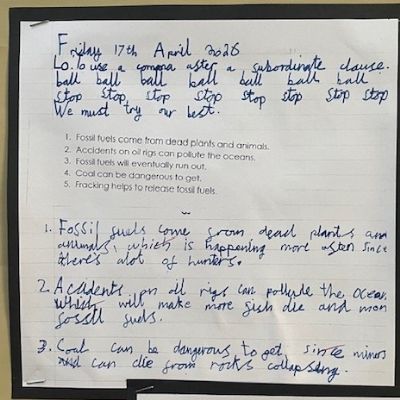 Friday 17th April 2026
LO. to use a comma after a subordinate clause.
ball ball ball ball ball ball ball
Stop Stop Stop Stop Stop Stop Stop Stop
We must try our best.
1. Fossil fuels come from dead plants and animals.
2. Accidents on oil rigs can pollute the oceans.
3. Fossil fuels will eventually run out.
4. Coal can be dangerous to get.
5. Fracking helps to release fossil fuels.
1. Fossil fuels come from dead plants and
animals, which is happening more often since
there's alot of hunters.
2. Accidents on oil rigs can pollute the ocean,
which will make more fish die and
fossil fuels.
3. Coal can be dangerous to get, since
and can die from rocks collapsing.